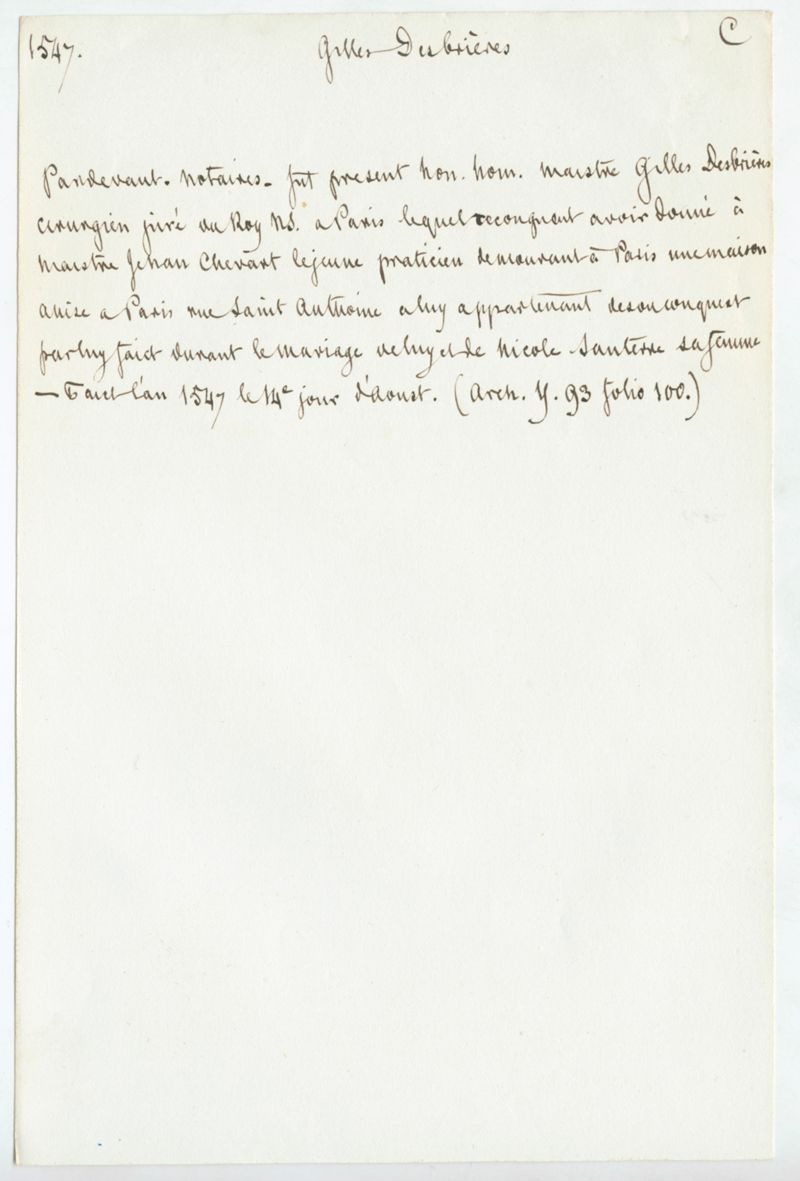 1547. Gilles Desbrières C
Pardevant. notaires. fut present hon. hom. maistre Gilles Desbrières
cirurgien juré du Roy NS. a Paris lequel recongneut avoir donné à
maistre Jehan Chevart lejeune praticien demourant à Paris une maison
assise a Paris rue Saint Anthoine a luy appartenant de son conquest
par luy faict durant le mariage de luy et de Nicole Santerre sa femme
— Faict l'an 1547 le 14e jour d'Aoust. (Arch. Y. 93 folio 100.)